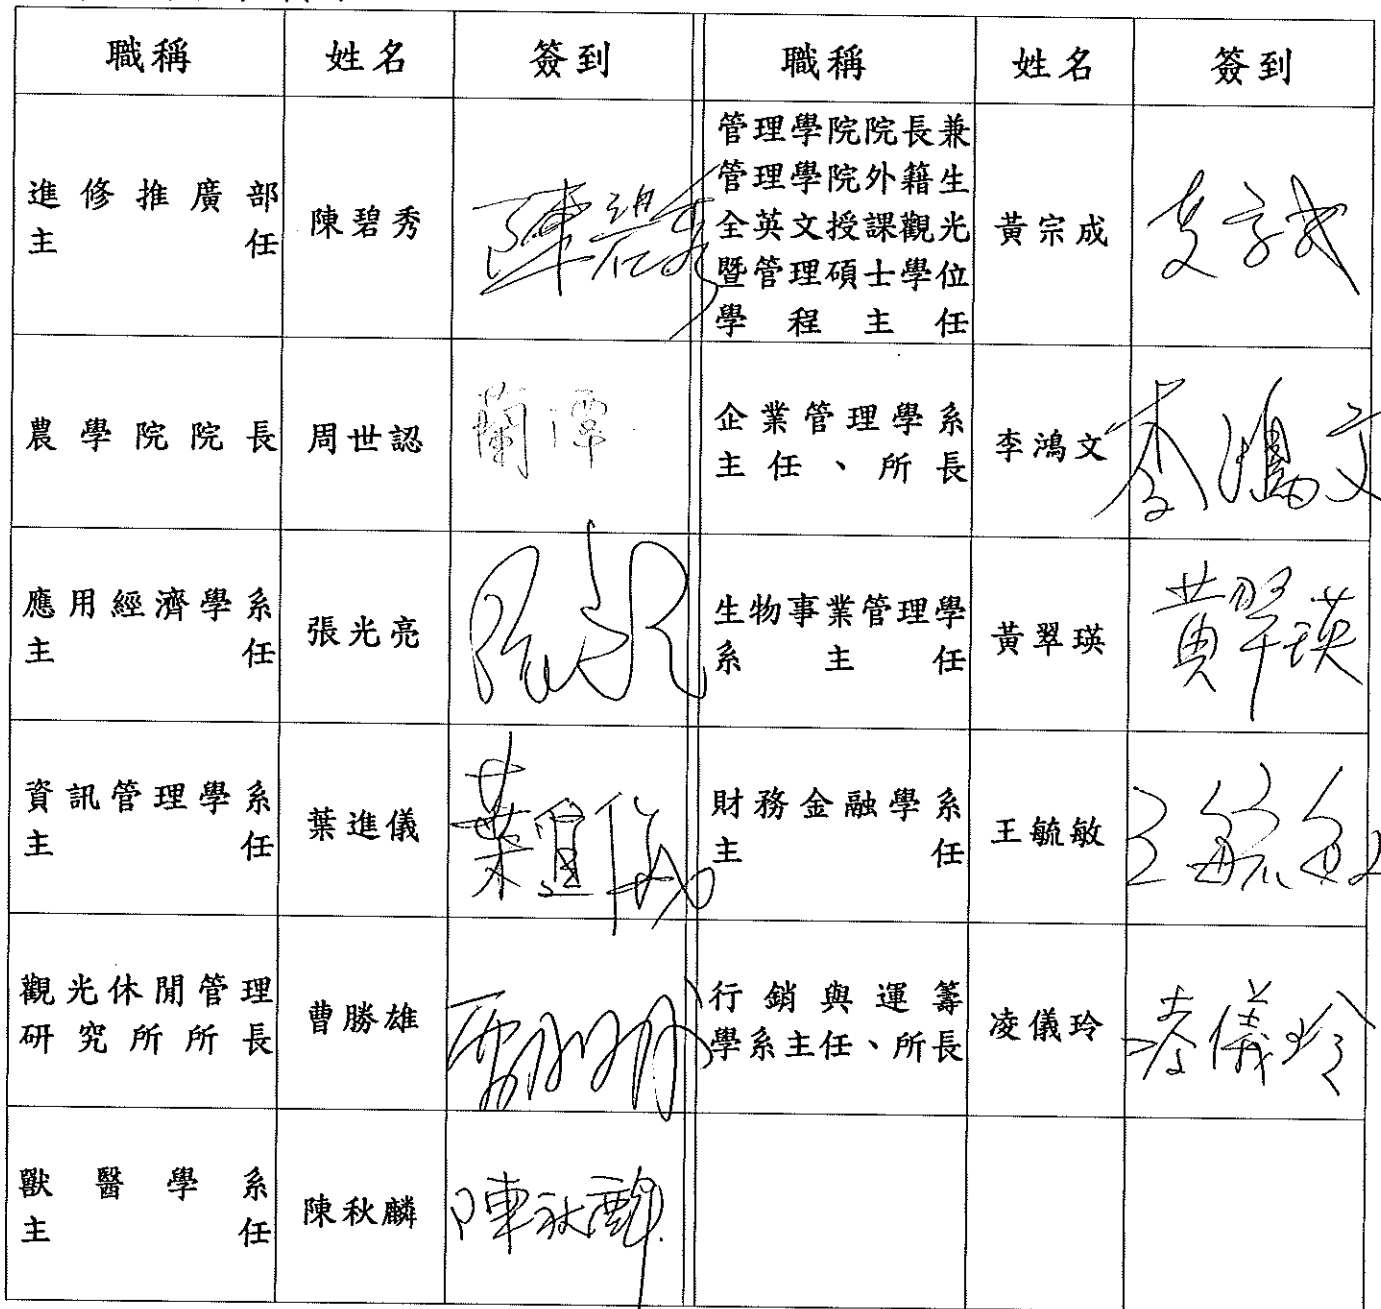 職稱 姓名 簽到 職稱 姓名 簽到
進修推廣部
主任
陳碧秀
陳碧秀
管理學院院長兼
管理學院外籍生
全英文授課觀光
暨管理碩士學位
學程主任
黃宗成
農學院院長
周世認
蘭潭
企業管理學系
主任、所長
李鴻文
李鴻文
應用經濟學系
主任
張光亮
生物事業管理學
系主任
黃翠瑛
黃翠瑛
資訊管理學系
主任
葉進儀
葉進儀
財務金融學系
主任
王毓敏
王毓敏
觀光休閒管理
研究所所長
曹勝雄
行銷與運籌
學系主任、所長
凌儀玲
凌儀玲
獸醫學系
主任
陳秋麟
陳秋麟